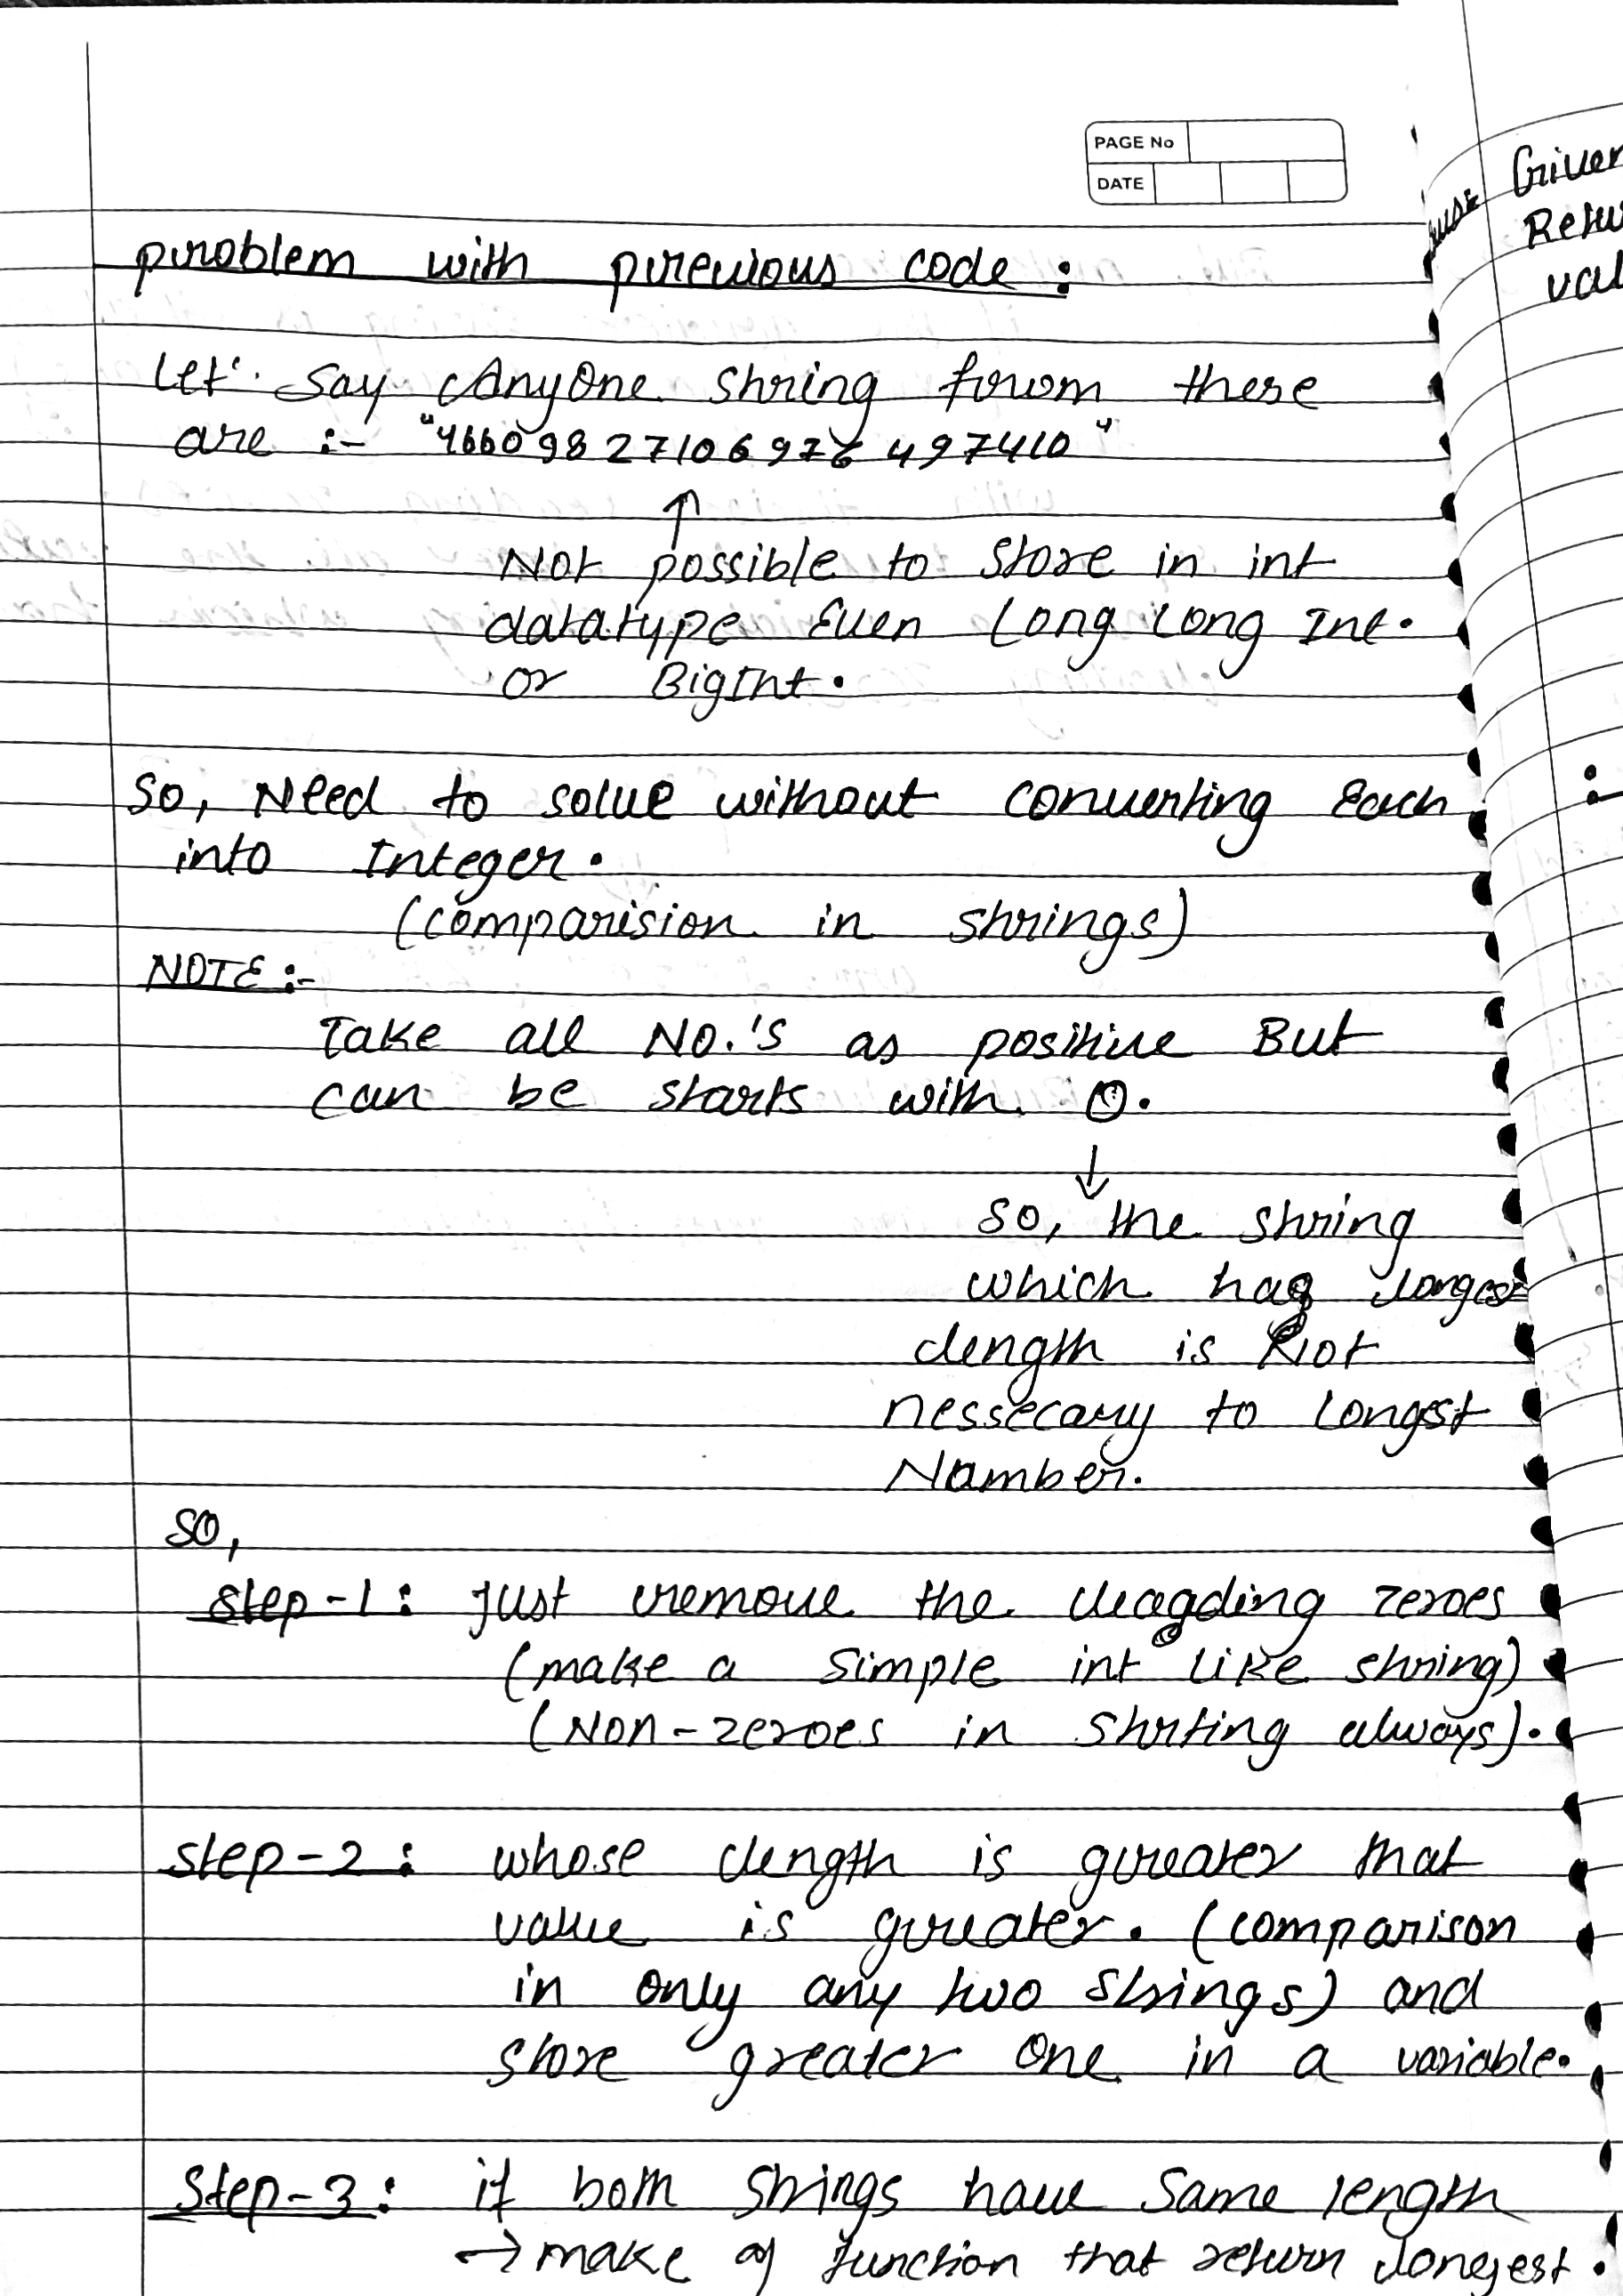 PAGE No
DATE
problem with previous code :
Let' say AnyOne string from these
are :- "4660982710697
497410"
Not possible to store in int
datatype Even Long Long Int.
or BigInt.
So, Need to solve without converting Each
into Integer.
(comparision in strings)
NOTE :-
Take all No.'s as positive But
can be starts with 0.
so, the string
which has longest
length is Not
nessecary to longest
Number.
so,
step-1 : Just remove the leading zeroes
(make a simple int like string)
(Non-zeroes in strting always).
step-2 : whose length is greater that
value is greater. (comparison
in only any two strings) and
store greater one in a variable.
Step-3 : if both strings have same length
→ make a function that return longest.
Given